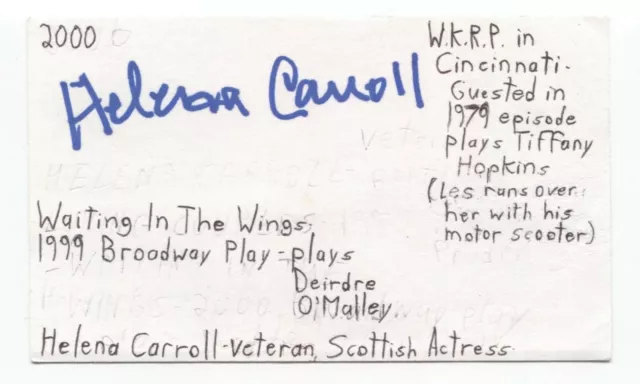 2000
Helena Carroll
W.K.R.P. in
Cincinnati.
Guested in
1979 episode
plays Tiffany
Hopkins
(Les runs over
her with his
motor scooter)
Waiting In The Wings,
1999 Broadway Play - plays
Deirdre
O'Malley
Helena Carroll-veteran, Scottish Actress